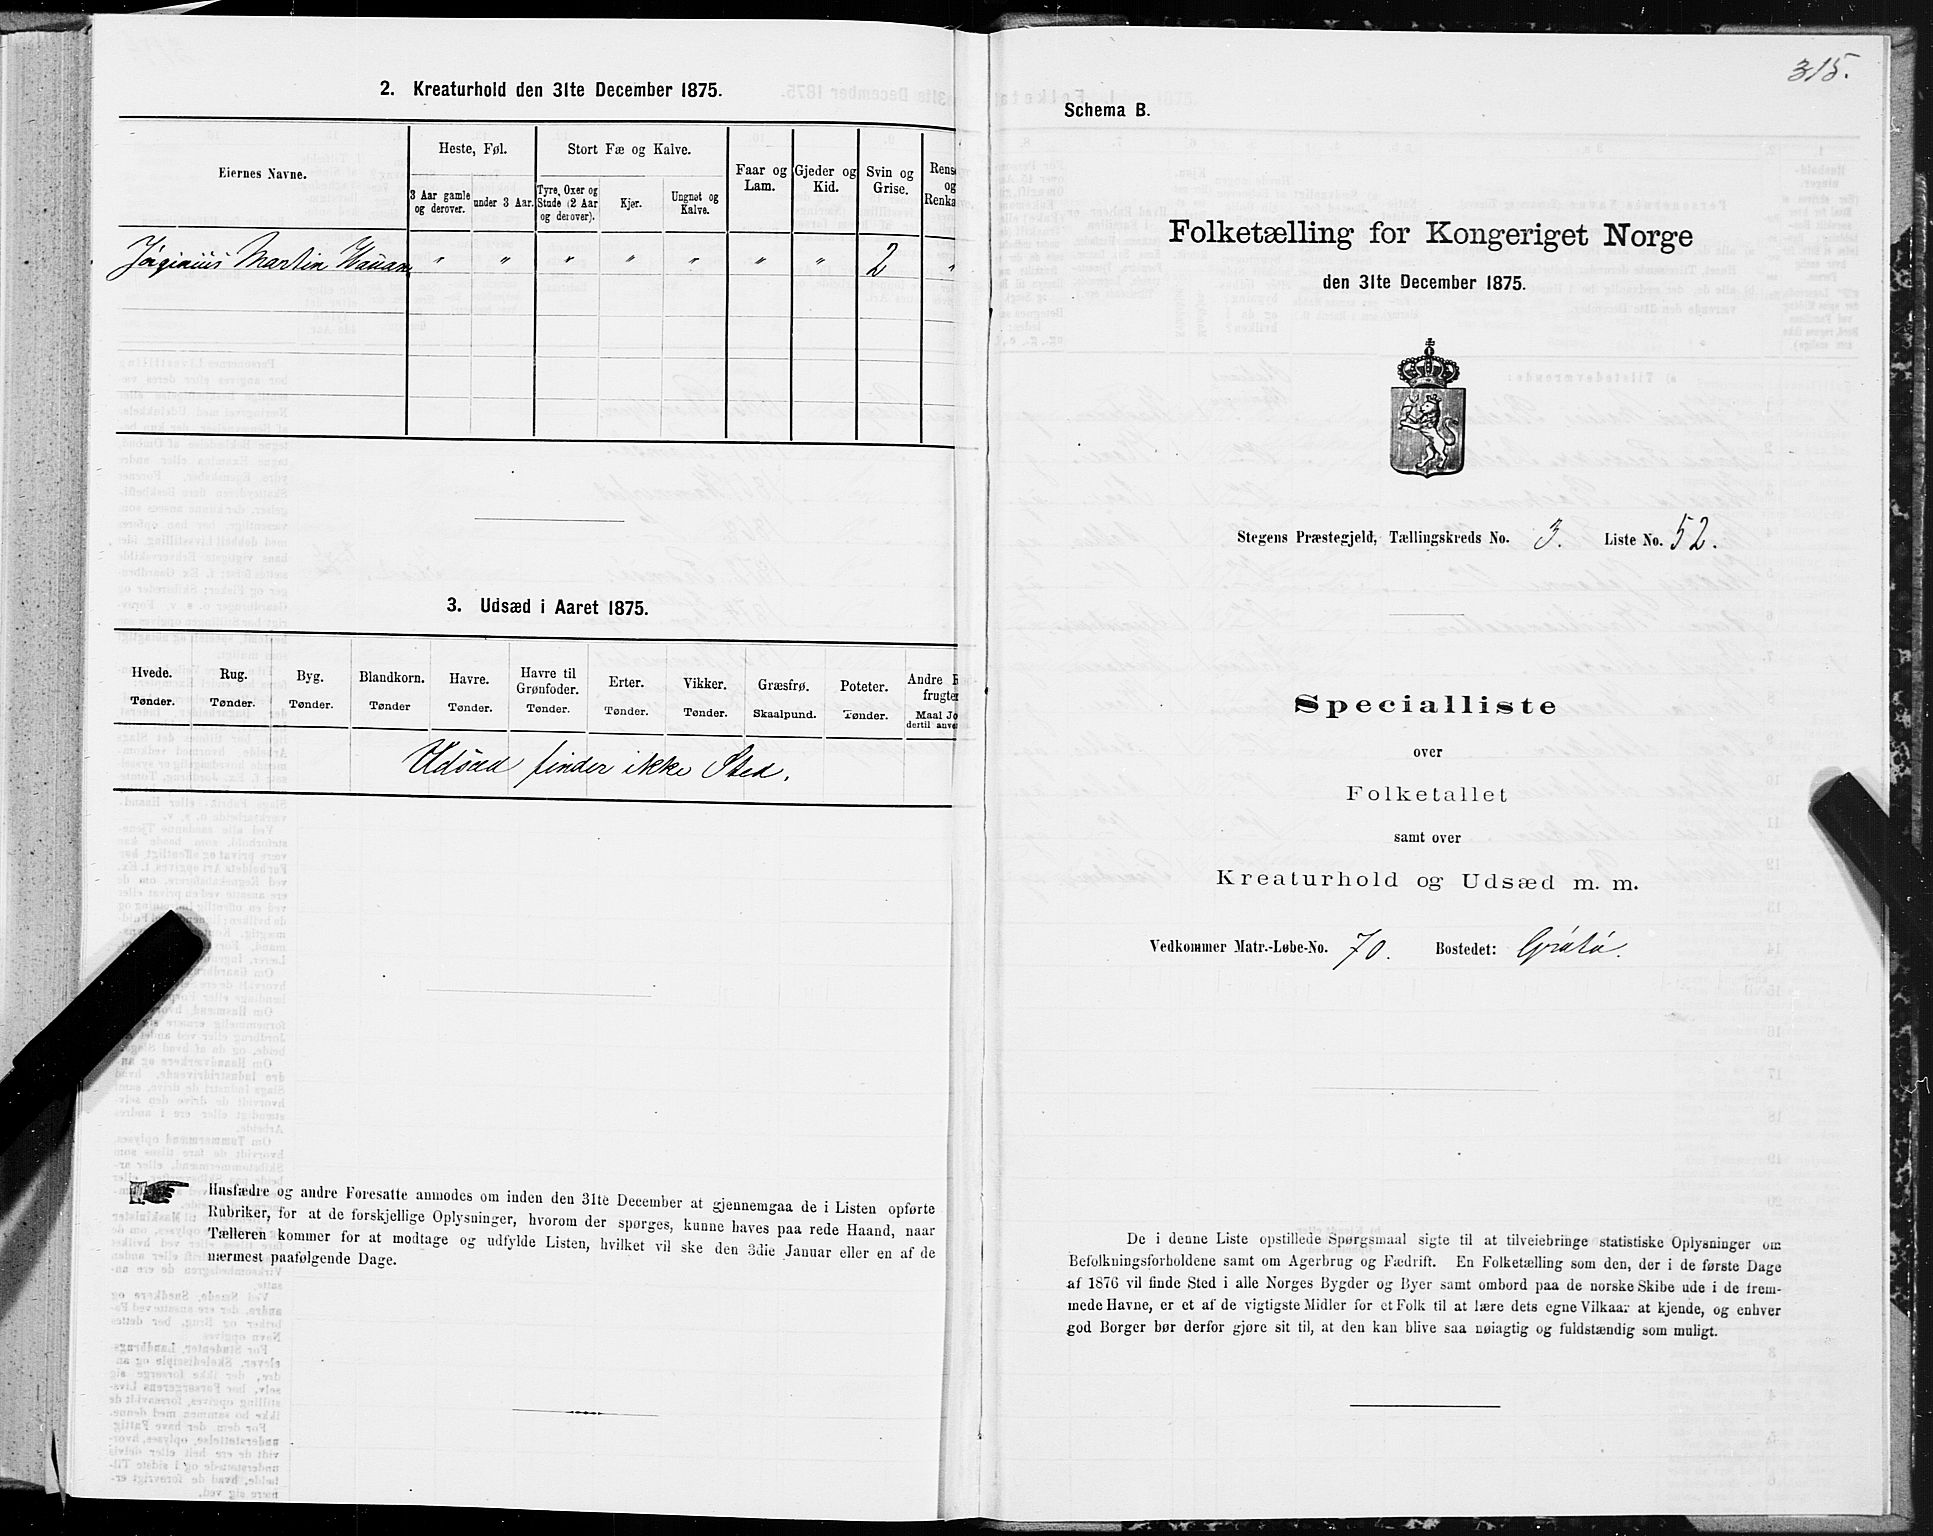 2. Kreaturhold den 31te December 1875.
Eiernes Navne.
Heste, Føl.
Stort Fæ og Kalve.
Faar og Lam.
Gjeder og Kid.
Svin og Grise.
Rens
og
Renka
3 Aar gamle og derover.
under 3 Aar.
Tyre, Oxer og Stude (2 Aar og derover).
Kjer.
Ungnøt og Kalve.
Martin " " " " " " " 2 "
3. Udsæd i Aaret 1875.
Hvede. Rug. Byg. Blandkorn. Havre. Havre til Grønfoder. Erter. Vikker. Græsfrø. Poteter. Andre
frugter
Tønder. Tønder. Tønder. Tønder Tønder. Tønder. Tønder. Tønder. Skaalpund. Tønder. Maal Jo
dertil anve
Udsæd finder ikke Sted.
Husfædre og andre Foresatte anmodes om inden den 31te December at gjennemgaa de i Listen opførte
Rubriker, for at de forskjellige Oplysninger, hvorom der spørges, kunne haves paa rede Haand, naar
Tælleren kommer for at modtage og udfylde Listen, hvilket vil ske den 3die Januar eller en af de
nærmest paafølgende Dage.
315.
Schema B.
Folketælling for Kongeriget Norge
den 31te December 1875.
Stegens Præstegjeld, Tællingskreds No. 3. Liste No. 52.
Specialliste
over
Folketallet
samt over
Kreaturhold og Udsæd m. m.
Vedkommer Matr.-Løbe-No. 70. Bostedet: Grøtø.
De i denne Liste opstillede Spørgsmaal sigte til at tilveiebringe statistiske Oplysninger om
Befolkningsforholdene samt om Agerbrug og Fædrift. En Folketælling som den, der i de første Dage
af 1876 vil finde Sted i alle Norges Bygder og Byer samt ombord paa de norske Skibe ude i de frem-
mede Havne, er et af de vigtigste Midler for et Folk til at lære dets egne Vilkaar at kjende, og enhver
god Borger bør derfor gjøre sit til, at den kan blive saa nøiagtig og fuldstændig som muligt.